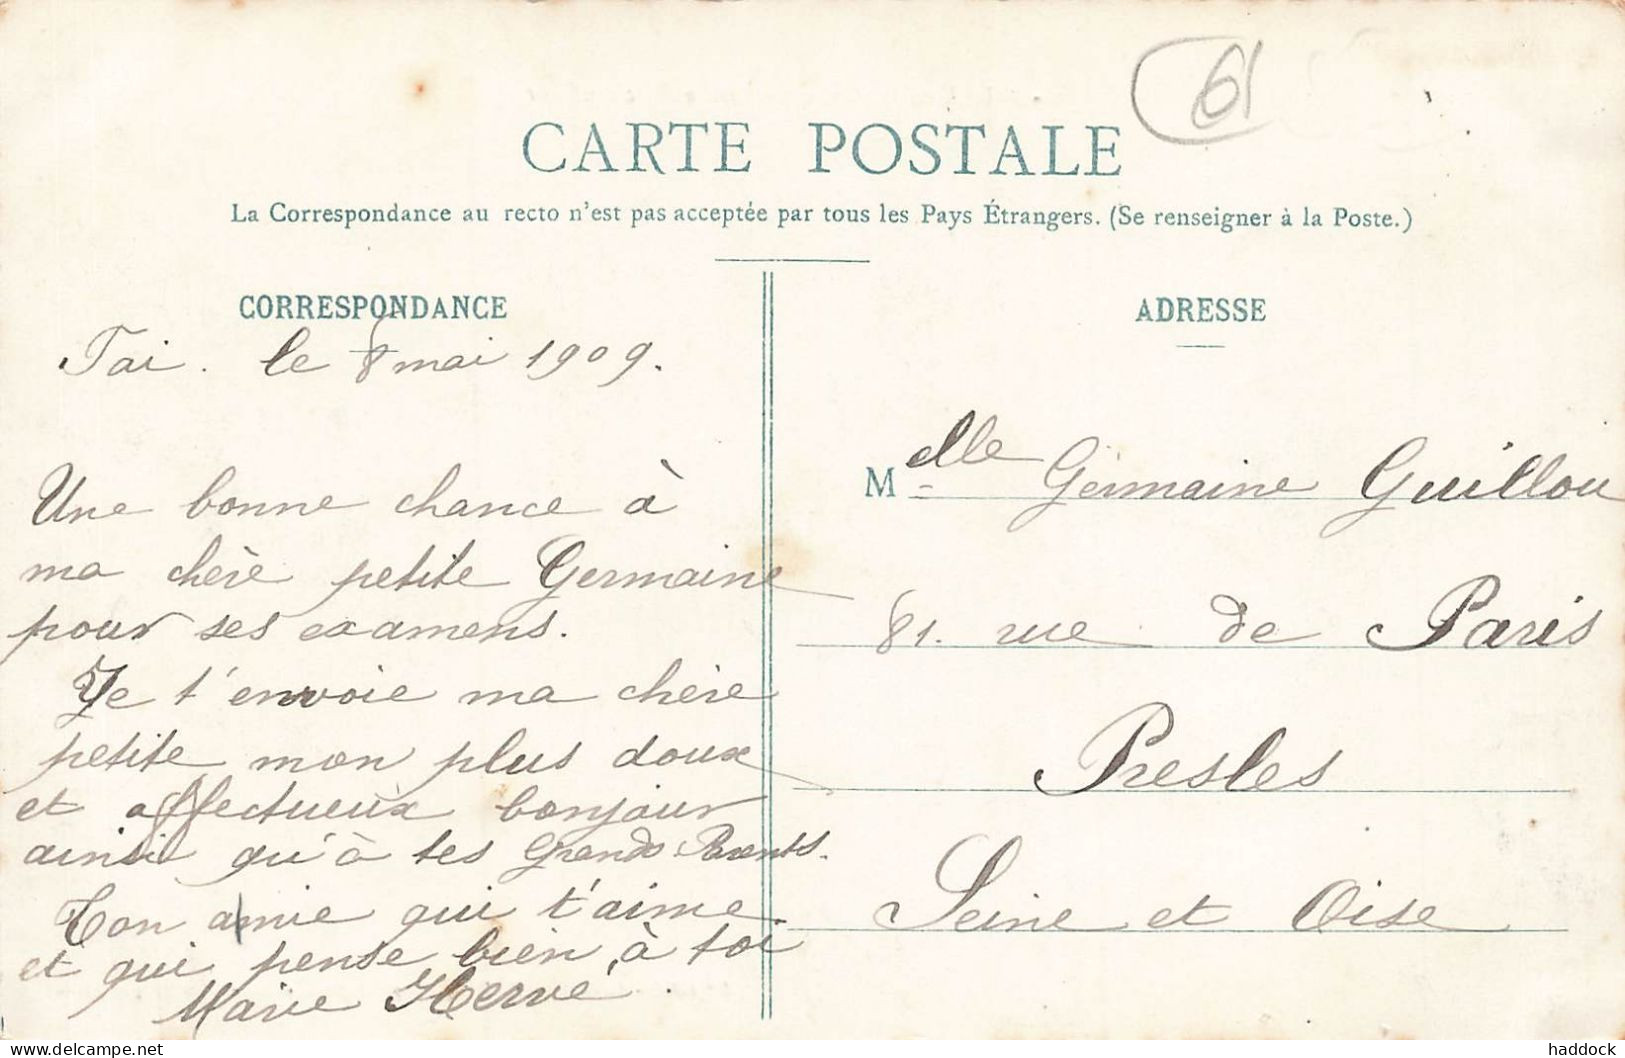 61
CARTE POSTALE
La Correspondance au recto n'est pas acceptée par tous les Pays Étrangers. (Se renseigner à la Poste.)
CORRESPONDANCE
Tai. le 8 mai 1909.
Une bonne chance à
ma chère petite Germaine
pour ses examens.
Je t'envoie ma chère
petite mon plus doux
et affectueux bonjour
ainsi qu'à tes Grands Parents.
Ton amie qui t'aime
et qui pense bien à toi
Marie Hervé.
ADRESSE
Melle Germaine Guillou
81. rue de Paris
Presles
Seine et Oise
www.delcampe.net
haddock